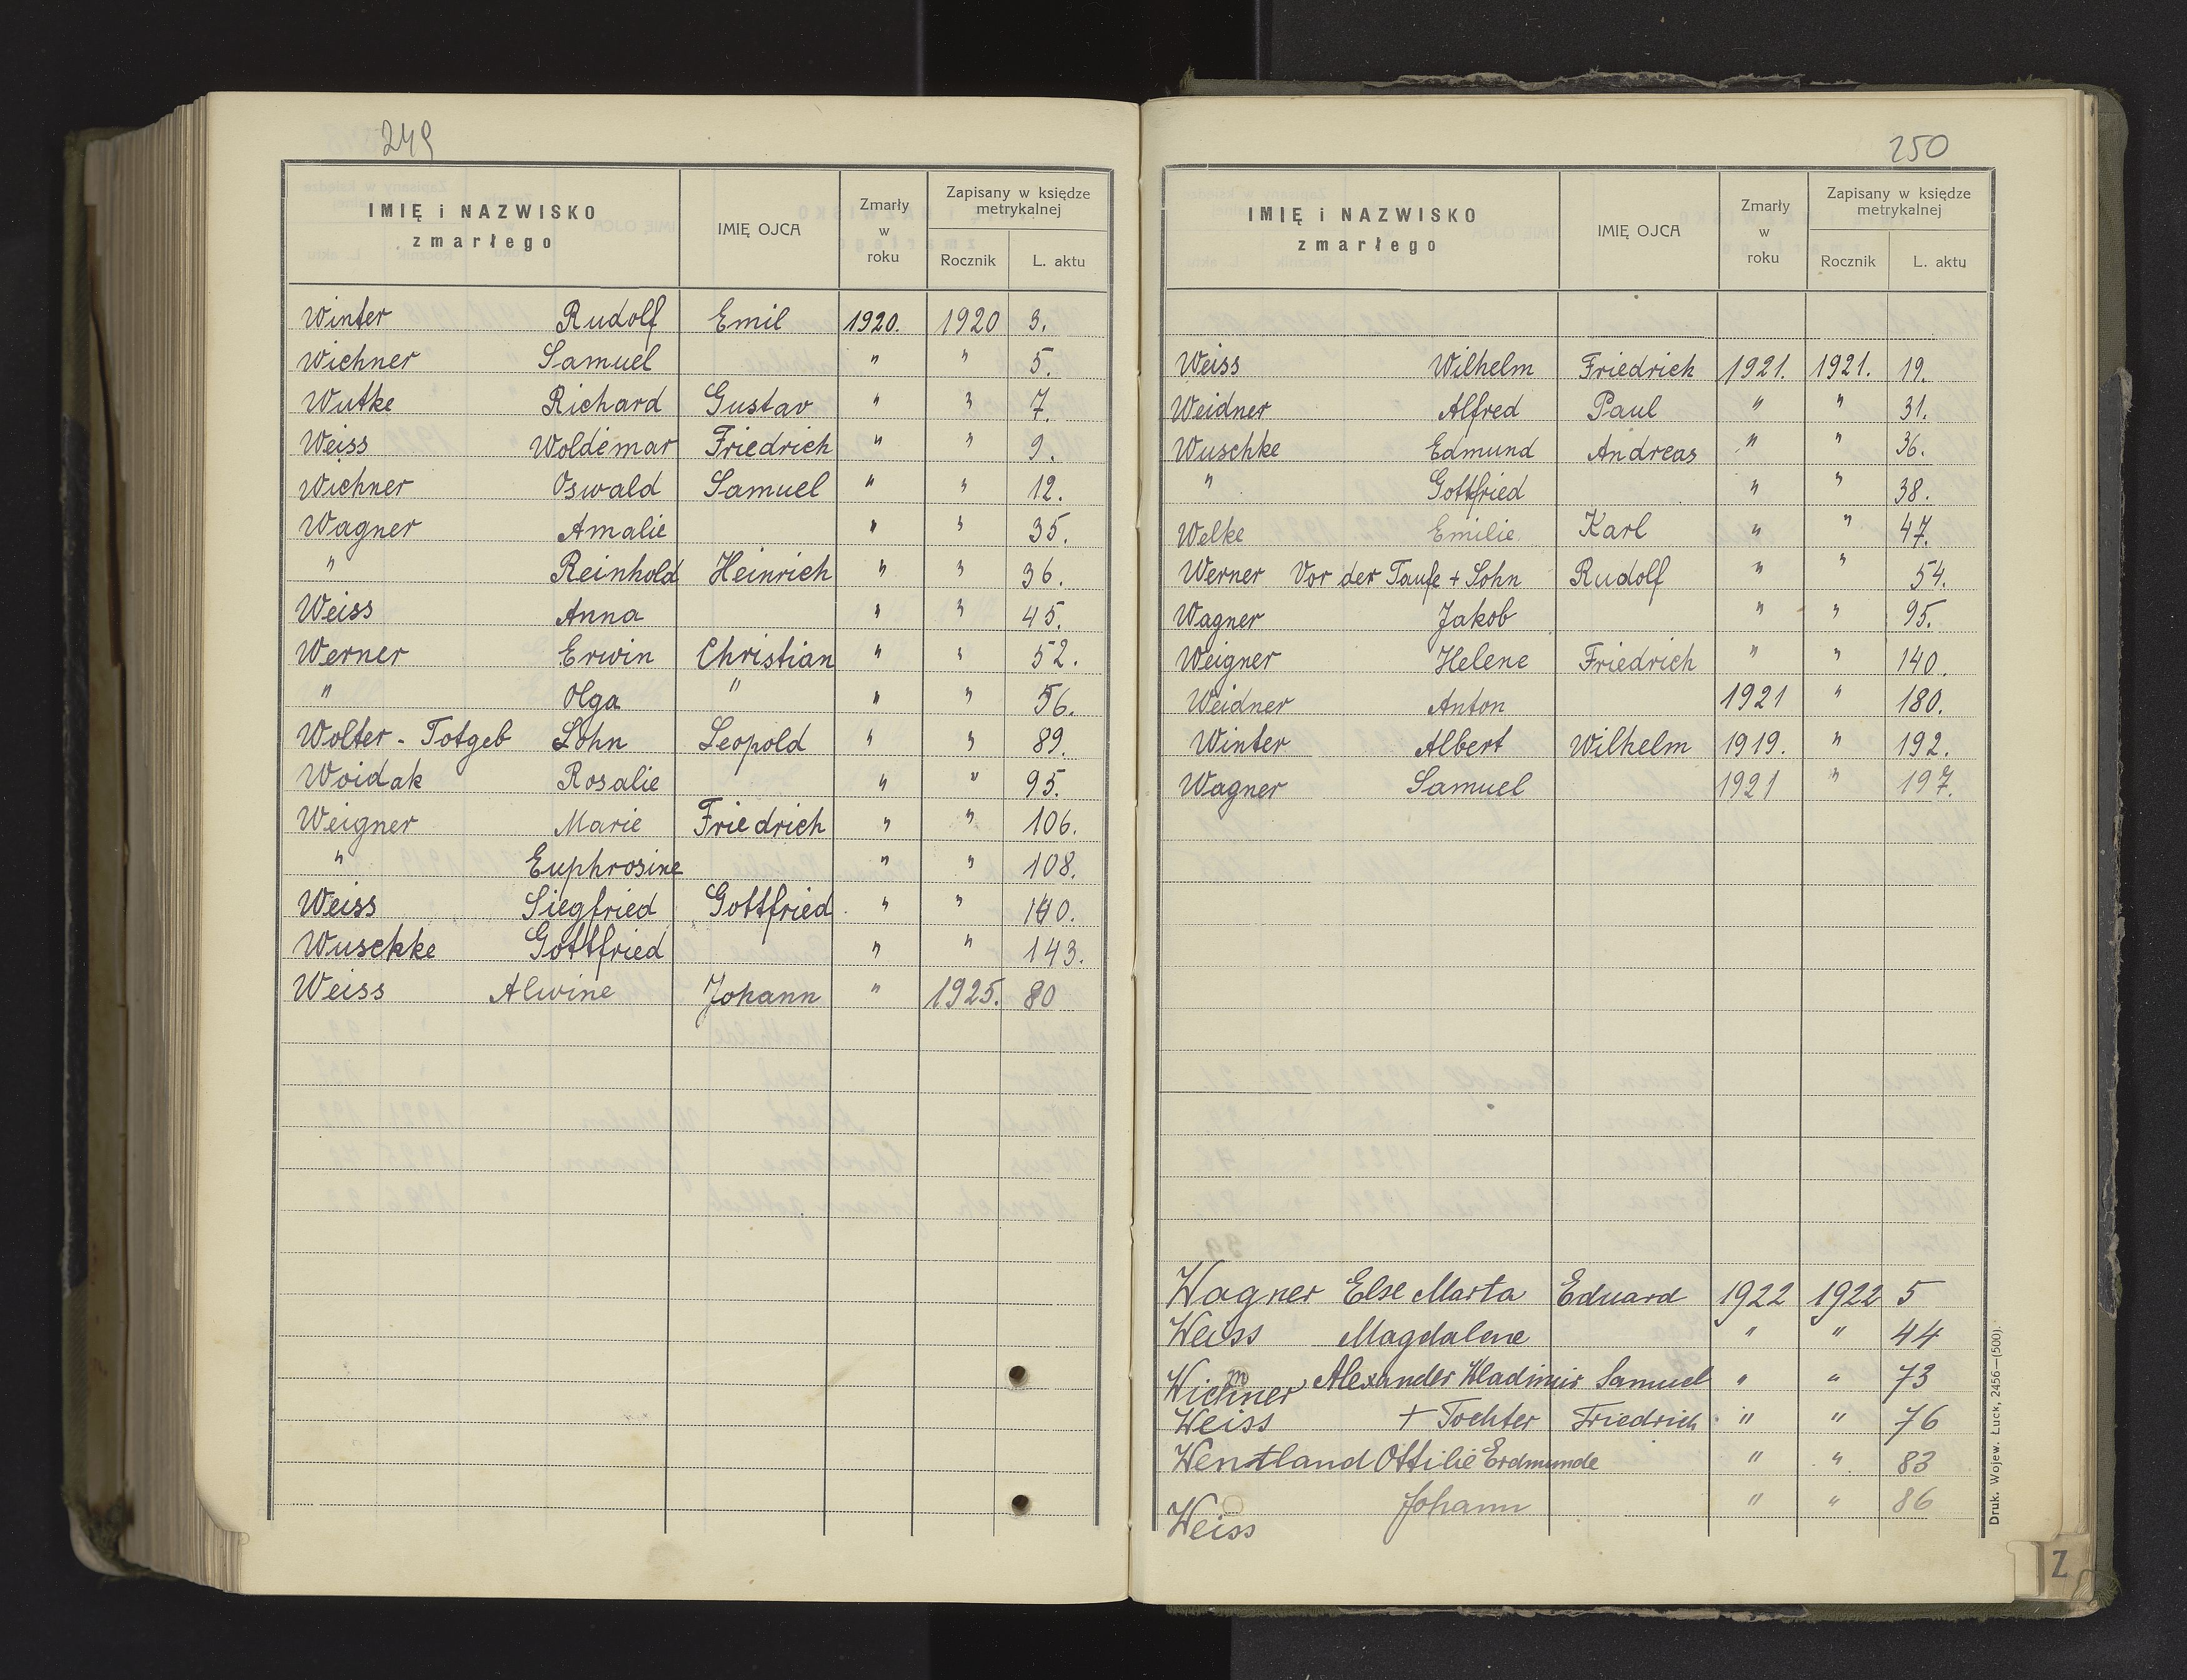 249
IMIĘ i NAZWISKO zmarłego IMIĘ OJCA Zmarły w roku Zapisany w księdze metrykalnej Rocznik L. aktu
Winter Rudolf Emil 1920. 1920 3.
Wichner Samuel " " 5.
Wutke Richard Gustav " " 7.
Weiss Woldemar Friedrich " " 9.
Wichner Oswald Samuel " " 12.
Wagner Amalie " " 35.
" Reinhold Heinrich " " 36.
Weiss Anna " " 45.
Werner Erwin Christian " " 52.
" Olga " " " 56.
Wolter - Totgeb Sohn Leopold " " 89.
Woidak Rosalie " " 95.
Weigner Marie Friedrich " " 106.
" Euphrosine " " 108.
Weiss Siegfried Gottfried " " 140.
Wuschke Gottfried " " 143.
Weiss Alwine Johann " 1925. 80
250
IMIĘ i NAZWISKO zmarłego IMIĘ OJCA Zmarły w roku Zapisany w księdze metrykalnej Rocznik L. aktu
Weiss Wilhelm Friedrich 1921. 1921. 19.
Weidner Alfred Paul " " 31.
Wuschke Edmund Andreas " " 36.
" Gottfried " " 38.
Welke Emilie Karl " " 47.
Werner Vor der Taufe + Sohn Rudolf " " 54.
Wagner Jakob " " 95.
Weigner Helene Friedrich " " 140.
Weidner Anton 1921 " 180.
Winter Albert Wilhelm 1919. " 192.
Wagner Samuel 1921 " 197.
Wagner Else Marta Eduard 1922 1922 5
Weiss Magdalene " " 44
Wichner Alexander Wladimir Samuel " " 73
Weiss + Tochter Friedrich " " 76
Wentland Ottilie Erdmunde " " 83
Weiss Johann " " 86
Druk. Wojew. Łuck, 2456—(500).
Z